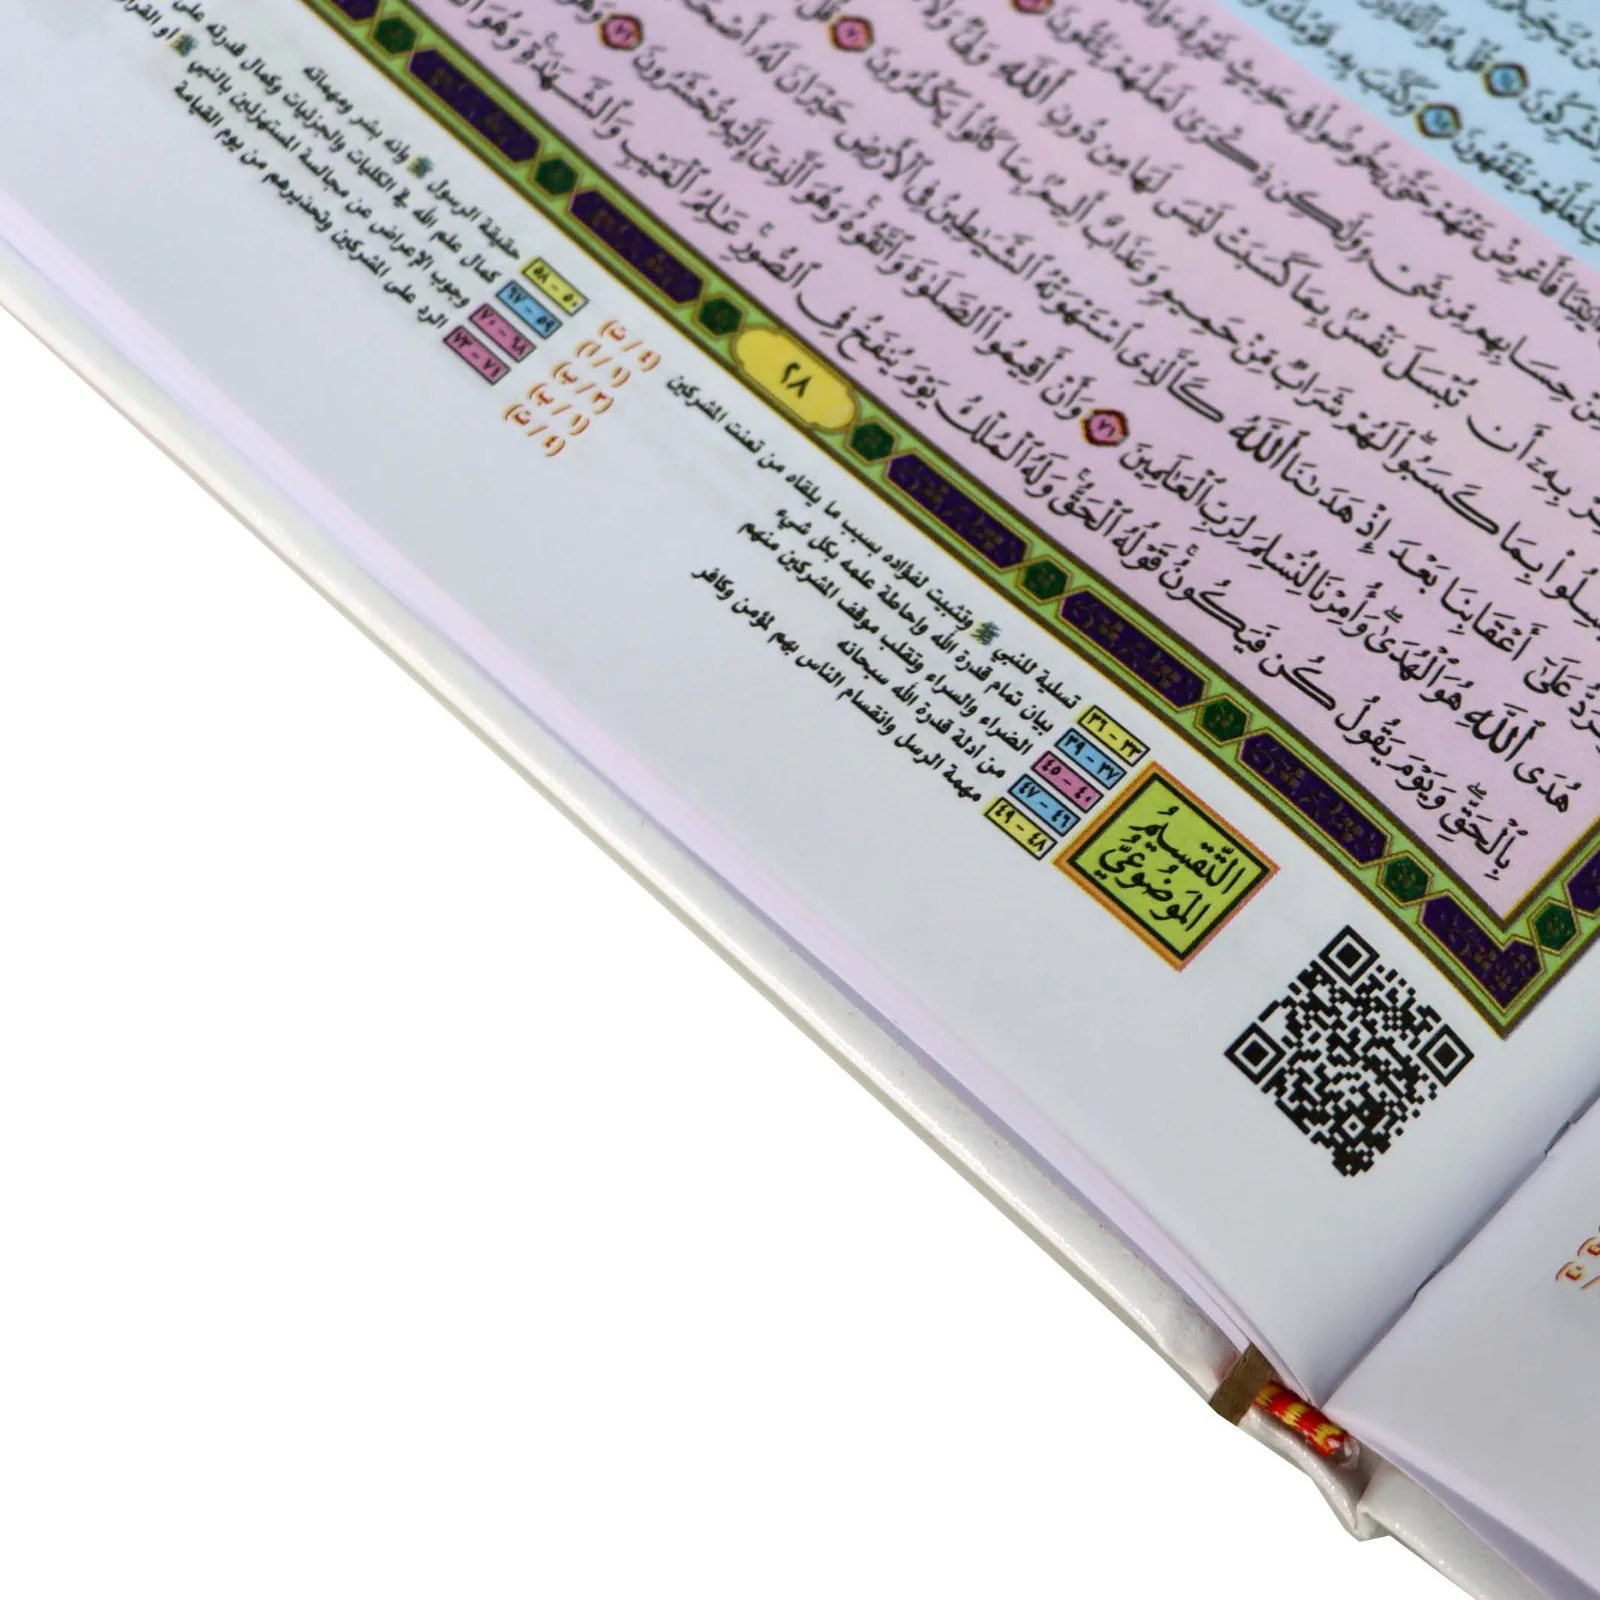 تُشْرِكُونَ ٦٤ قُلْ هُوَ ٱلْقَادِرُ
لَعَلَّهُمْ يَفْقَهُونَ ٦٥ وَكَذَّبَ بِهِۦ قَوْمُكَ
فَأَعْرِضْ عَنْهُمْ حَتَّىٰ يَخُوضُوا۟ فِى حَدِيثٍ غَيْرِهِۦ
مِنْ حِسَابِهِم مِّن شَىْءٍ وَلَـٰكِن ذِكْرَىٰ لَعَلَّهُمْ يَتَّقُونَ
بِهِۦٓ أَن تُبْسَلَ نَفْسٌۢ بِمَا كَسَبَتْ لَيْسَ لَهَا مِن دُونِ ٱللَّهِ وَلِىٌّ وَلَا
أُبْسِلُوا۟ بِمَا كَسَبُوا۟ لَهُمْ شَرَابٌ مِّنْ حَمِيمٍ وَعَذَابٌ أَلِيمٌۢ بِمَا كَانُوا۟ يَكْفُرُونَ ٧٠ قُلْ
وَنُرَدُّ عَلَىٰٓ أَعْقَابِنَا بَعْدَ إِذْ هَدَىٰنَا ٱللَّهُ كَٱلَّذِى ٱسْتَهْوَتْهُ ٱلشَّيَـٰطِينُ فِى ٱلْأَرْضِ حَيْرَانَ لَهُۥٓ
هُدَى ٱللَّهِ هُوَ ٱلْهُدَىٰ ۖ وَأُمِرْنَا لِنُسْلِمَ لِرَبِّ ٱلْعَـٰلَمِينَ ٧١ وَأَنْ أَقِيمُوا۟ ٱلصَّلَوٰةَ وَٱتَّقُوهُ ۚ وَهُوَ ٱلَّذِىٓ إِلَيْهِ تُحْشَرُونَ ٧٢ وَهُوَ
بِٱلْحَقِّ ۖ وَيَوْمَ يَقُولُ كُن فَيَكُونُ ۚ قَوْلُهُ ٱلْحَقُّ ۚ وَلَهُ ٱلْمُلْكُ يَوْمَ يُنفَخُ فِى ٱلصُّورِ ۚ عَـٰلِمُ ٱلْغَيْبِ وَٱلشَّهَـٰدَةِ ۚ وَهُوَ
٢٨
التَّقْسِيمُ
المَوْضُوعِيُّ
٣٣ - ٣٦ تسلية للنبي ﷺ وتثبيت لفؤاده بسبب ما يلقاه من تعنت المشركين
٣٧ - ٣٩ بيان تمام قدرة الله وإحاطة علمه بكل شيء
٤٠ - ٤٥ الضراء والسراء وتقلب موقف المشركين منهم
٤٦ - ٤٧ من أدلة قدرة الله سبحانه
٤٨ - ٤٩ مهمة الرسل وانقسام الناس بهم لمؤمن وكافر
٥٠ - ٥٨ حقيقة الرسول ﷺ وأنه بشر ومهماته
٥٩ - ٦٧ كمال علم الله في الكليات والجزئيات وكمال قدرته على
٦٨ - ٧٠ وجوب الإعراض عن مجالسة المستهزئين بالنبي ﷺ أو القرآن
٧١ - ٧٣ الرد على المشركين وتحذيرهم من يوم القيامة